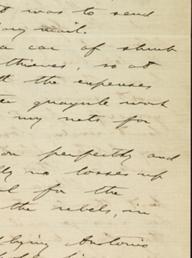 t was to send
my mail.
a car of shrub
thieves, so at
th the expenses
guayule work
my note for
on perfectly and
ly no losses up
for the
the rebels, in
lying Antonio